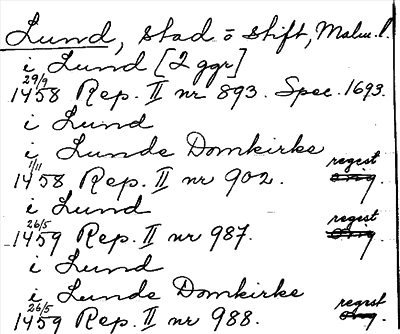 Lund, stad o stift, Malm. l.
i Lund [2 ggr]
29/9
1458 Rep. II nr 893. Spec. 1693.
i Lund
i Lunde Domkirke
1/11 regist
1458 Rep. II nr 902. orig.
i Lund
26/5 regist
1459 Rep. II nr 987. orig.
i Lund
i Lunde Domkirke
26/5 regist
1459 Rep. II nr 988. orig.